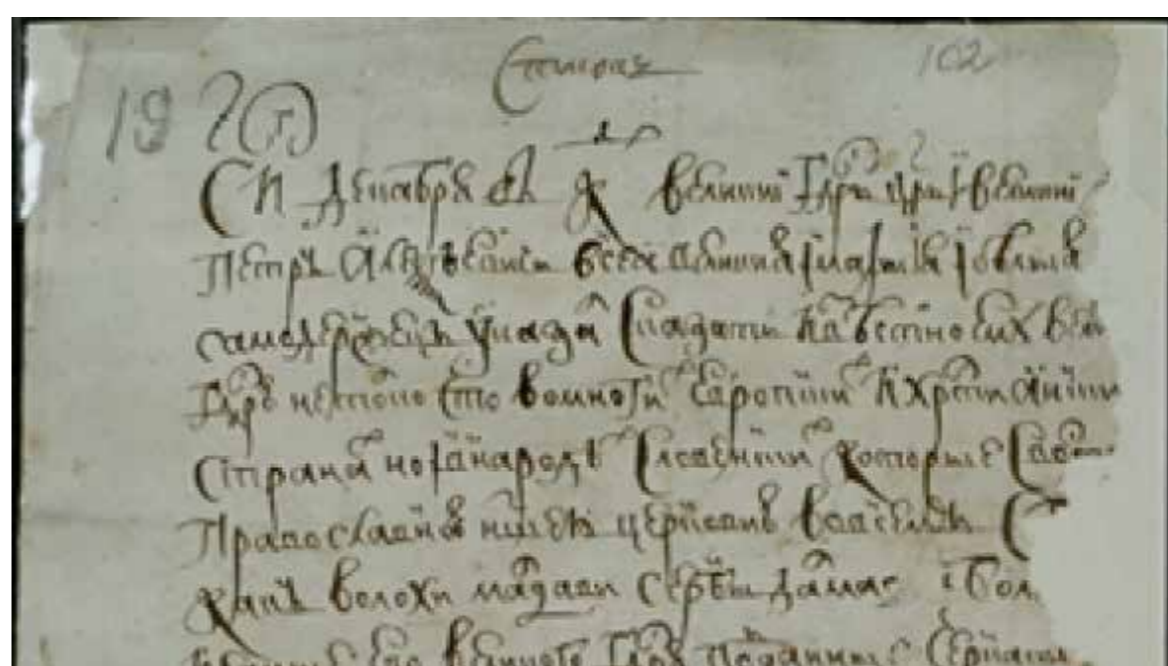 Список 102
19
СИ декабря въ К великиї гдрь црь ї великиї
Петръ Алеѯѣевичь всеа великия ї малыя ї белыя
самодержецъ указал сказати извѣстно ему вел
гдрю не толко что во многих еѵропских християнских
странах но ї в народѣх словенских которые с вос
православною нашею церковию во всемъ с
какъ волохи молдави сербы далма ї бол
его великого гдря подданные черкасы